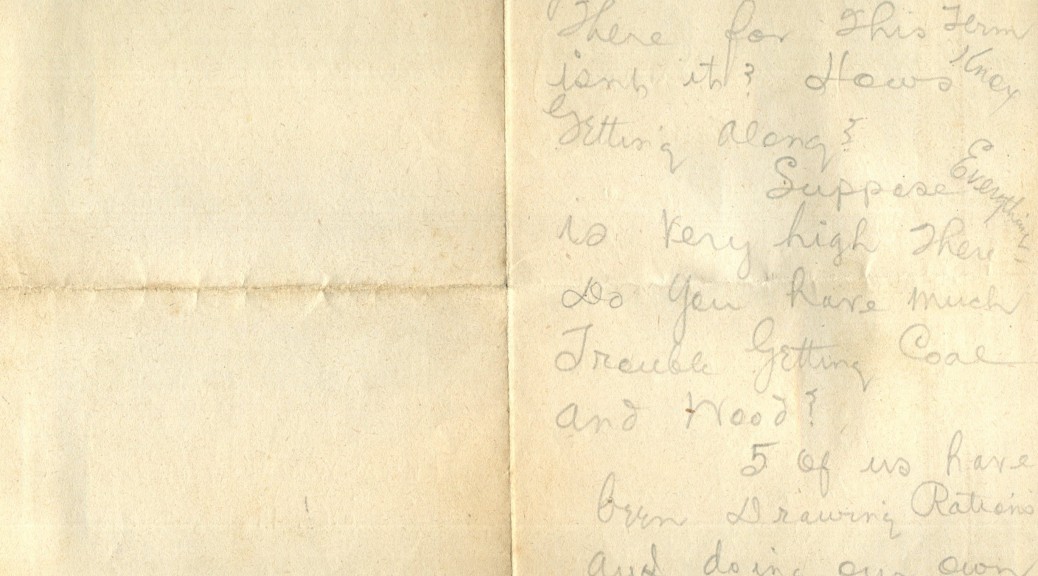 There for This Term
isnt it? Hows Knox
Getting along?
Suppose Everything
is Very high There -
Do You have much
Trouble Getting Coal
and Wood?
5 of us have
been Drawing Rations
and doing our own